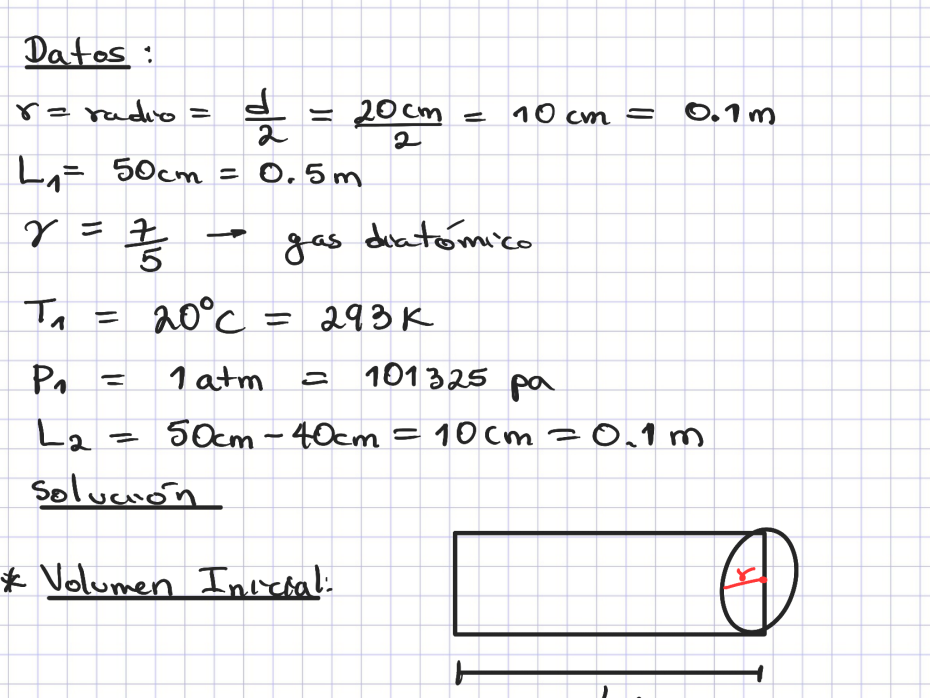 Datos:
r = radio = d/2 = 20cm/2 = 10 cm = 0.1 m
L₁ = 50cm = 0.5 m
γ = 7/5 → gas diatómico
T₁ = 20°C = 293 K
P₁ = 1 atm = 101325 pa
L₂ = 50cm - 40cm = 10 cm = 0.1 m
Solución
* Volumen Inicial:
r